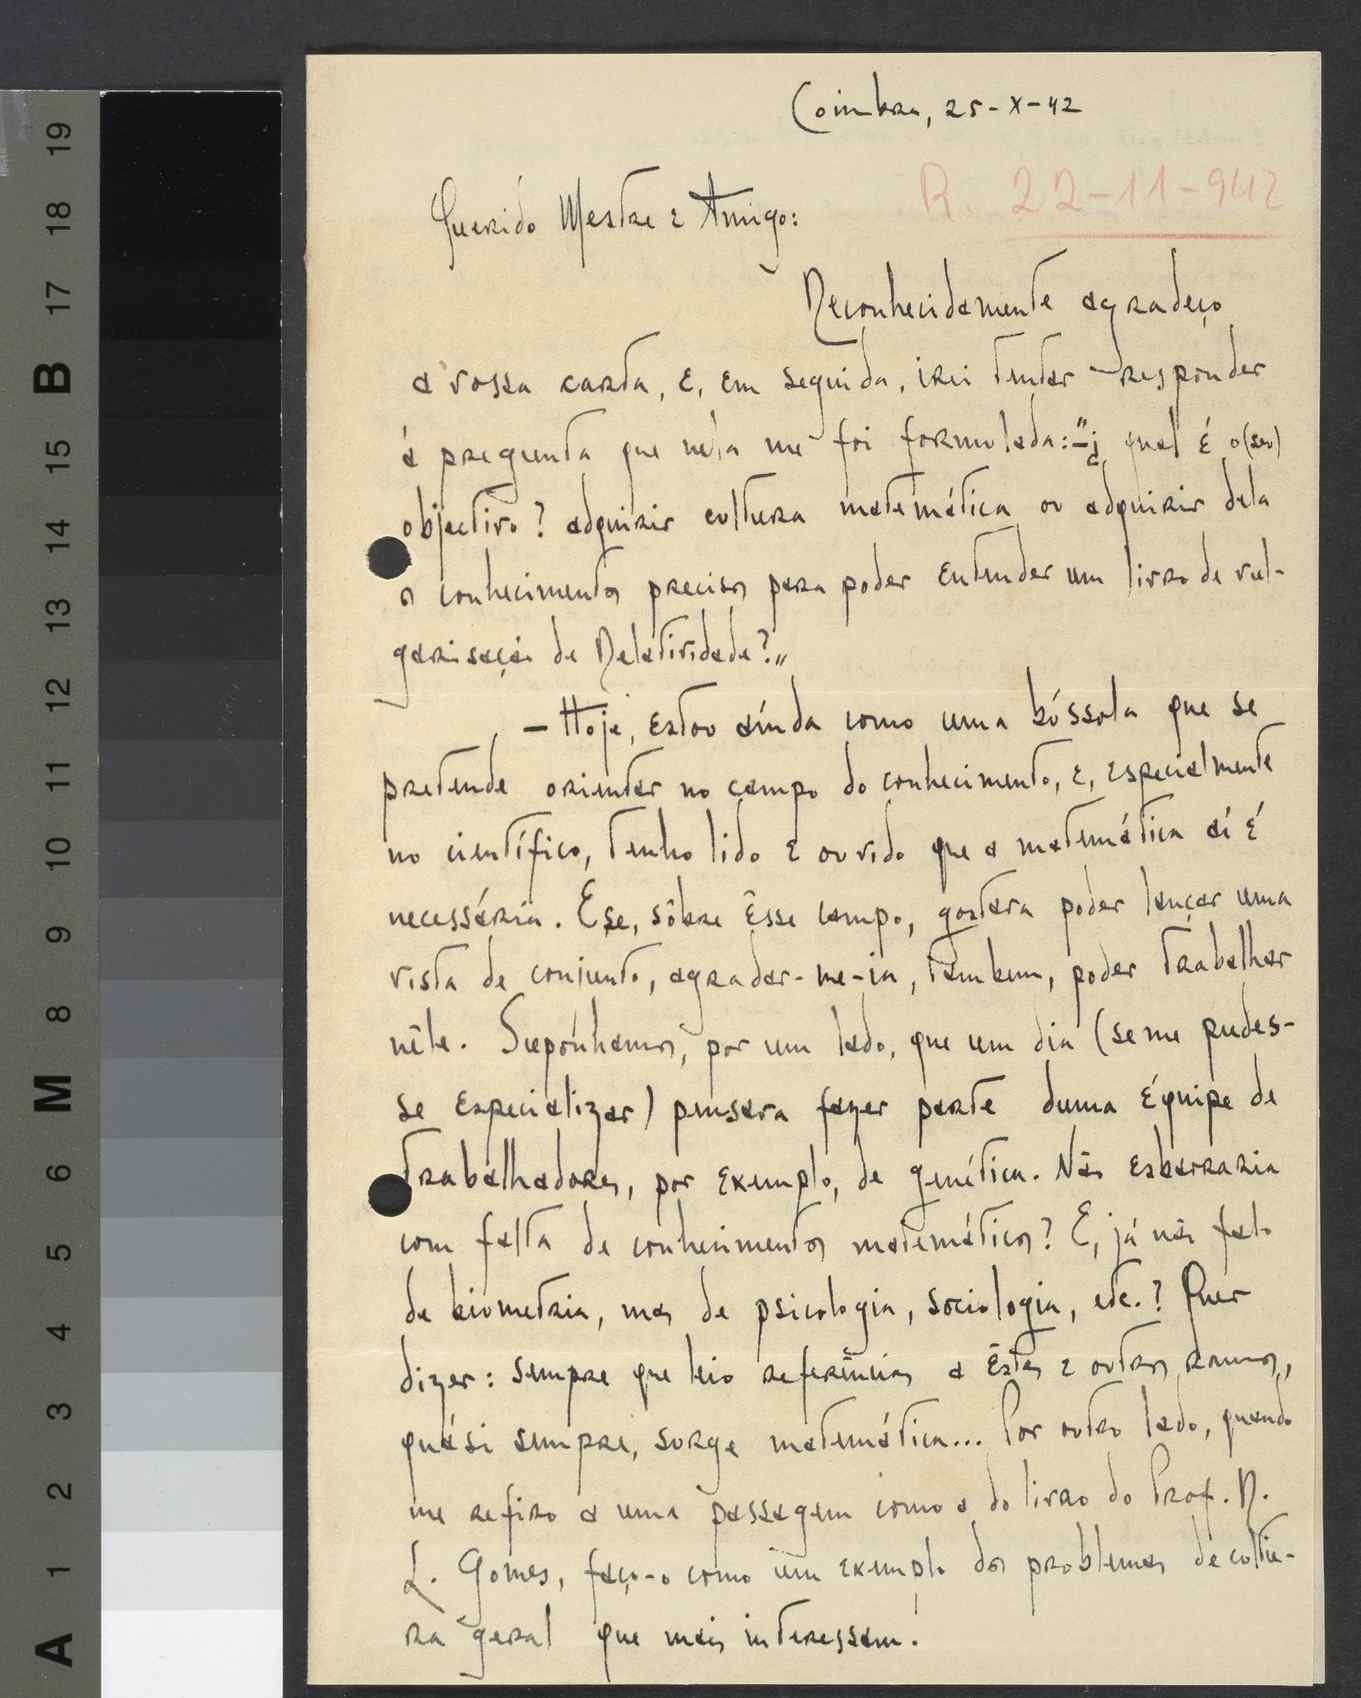 Coimbra, 25-X-42
R. 22-11-942
Querido Mestre e Amigo:
Reconhecidamente agradeço
a vossa carta, e, em seguida, irei tentar responder
á pregunta que nela me foi formulada: "-¿ qual é o (seu)
objectivo? adquirir cultura matemática ou adquirir dela
os conhecimentos precisos para poder entender um livro de vul-
garisação de Relatividade?"
- Hoje, estou aínda como uma bússola que se
pretende orientar no campo do conhecimento, e, especialmente
no científico, tenho lido e ouvido que a matemática aí é
necessária. E se, sôbre êsse campo, gostara poder lançar uma
vista de conjunto, agradar-me-ia, tambem, poder trabalhar
nêle. Suponhamos, por um lado, que um dia (se me pudes-
se especializar) pensara fazer parte duma équipe de
trabalhadores, por exemplo, de genética. Não esbarraria
com falta de conhecimentos matemáticos? E, já não falo
de biometria, mas de psicologia, sociologia, etc.? Quer
dizer: sempre que leio referências a êstes e outros ramos,
quási sempre, surge matemática... Por outro lado, quando
me refiro a uma passagem como a do livro do Prof. R.
L. Gomes, faço-o como um exemplo dos problemas de cultu-
ra geral que mais interessam.
19
18
17
B
15
14
13
12
11
10
9
8
M
6
5
4
3
2
1
A